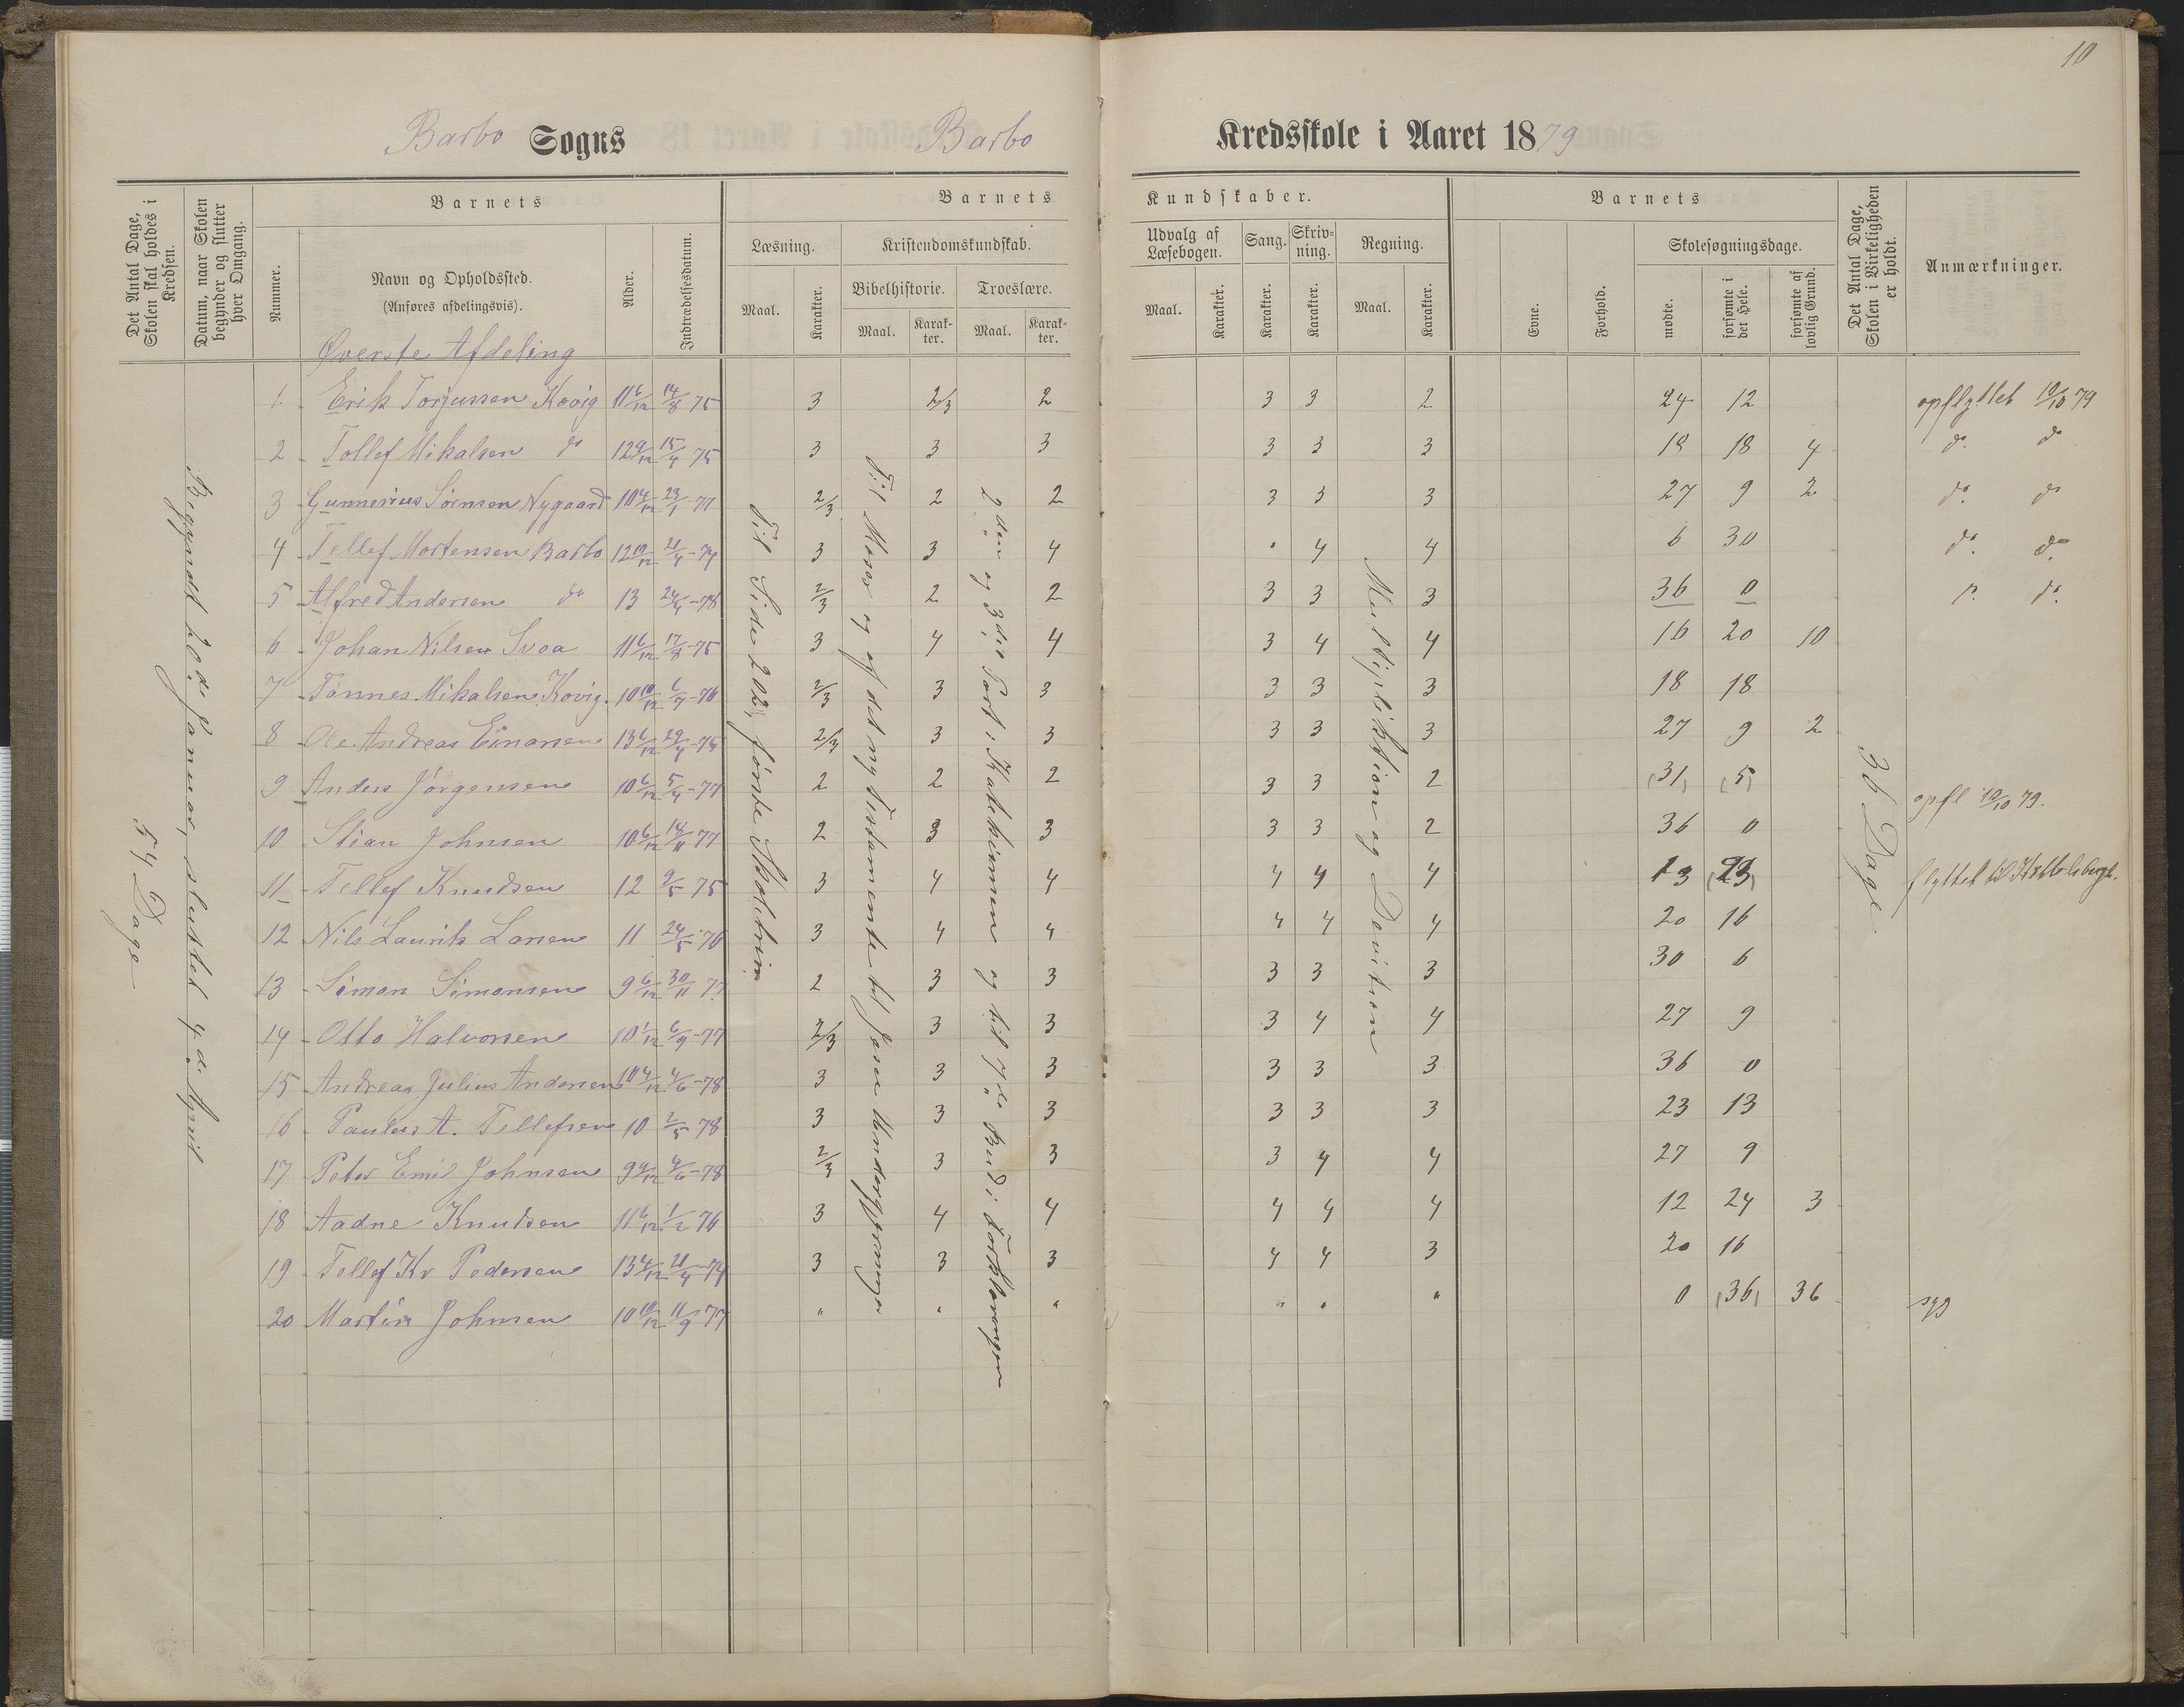 10
Barbo Sogns Barbo Kredsskole i Aaret 1879
Det Antal Dage, Skolen skal holdes i Kredsen.
Datum, naar Skolen begynder og slutter hver Omgang.
Nummer.
Barnets
Navn og Opholdssted.
(Anføres afdelingsvis).
Alder.
Indtrædelsesdatum.
Barnets Kundskaber.
Læsning.
Maal. Karakter.
Kristendomskundskab.
Bibelhistorie. Troeslære.
Maal. Karakter. Maal. Karakter.
Udvalg af Læsebogen.
Maal. Karakter.
Sang. Karakter.
Skrivning. Karakter.
Regning.
Maal. Karakter.
Barnets
Evne. Forhold.
Skolesøgningsdage.
mødte. forsømte i det Hele. forsømte af lovlig Grund.
Det Antal Dage, Skolen i Virkeligheden er holdt.
Anmærkninger.
Øverste Afdeling
1. Erik Torjussen Kovig 11 6/12 14/8 75 3 2/3 2 3 3 2 24 12 opflyttet 10/10 79
2 Tollef Mikalsen do 12 9/12 15/4 75 3 3 3 3 3 3 18 18 4 do. do
3 Gunnerius Sörensen Nygaard 10 4/12 23/1 77 2/3 2 2 3 3 3 27 9 2 do. do
4 Tellef Mortensen Barbo 12 10/12 21/4-74 3 3 4 " 4 4 6 30 do. do.
5 Alfred Andersen do 13 24/4-78 2/3 2 2 3 3 3 36 0 do. do.
6 Johan Nilsen Svoa 11 6/12 17/8-75 3 4 4 3 4 4 16 20 10
7 Tönnes Mikalsen Kovig. 10 10/12 6/7-76 2/3 3 3 3 3 3 18 18
8 Ole Andreas Einarsen 13 6/12 29/4-75 2/3 3 3 3 3 3 27 9 2
9 Anders Jörgensen 10 6/12 5/4-77 2 2 2 3 3 2 (31) (5) opfl 10/10 79.
10 Stian Johnsen 10 6/12 18/11 77 2 3 3 3 3 2 36 0
11 Tellef Knudsen 12 9/5 75 3 4 4 4 4 4 13 (23) flyttet til
12 Nils Laurits Larsen 11 24/5-76 3 4 4 4 4 4 20 16
13 Simon Simonsen 9 6/12 30/11 77 2 3 3 3 3 3 30 6
14 Otto Halvorsen 10 1/12 6/9-77 2/3 3 3 3 4 4 27 9
15 Andreas Julius Andersen 10 4/12 4/6-78 3 3 3 3 3 3 36 0
16 Paulus A. Tellefsen 10 2/5 78 3 3 3 3 3 3 23 13
17 Peter Emil Johnsen 9 9/12 4/6-78 2/3 3 3 3 4 4 27 9
18 Aadne Knudsen 11 6/12 1/2 76 3 4 4 4 4 4 12 24 3
19 Tellef Kr Pedersen 13 4/12 21/4-74 3 3 3 4 4 3 20 16
20 Martin Johnsen 10 10/12 11/9 77 " " " " " " 0 (36) 36 syg
54 Dage
Begyndt 20de Januar, sluttet 4de April
Til Side 202, første Skoletrin
Til Moses og af det ny Testamente til Jesu Undergjerninger
2den og 3die Part i Katekismen og til 7de Bud i Forklaringen
Multiplikation og Devition
36 Dage